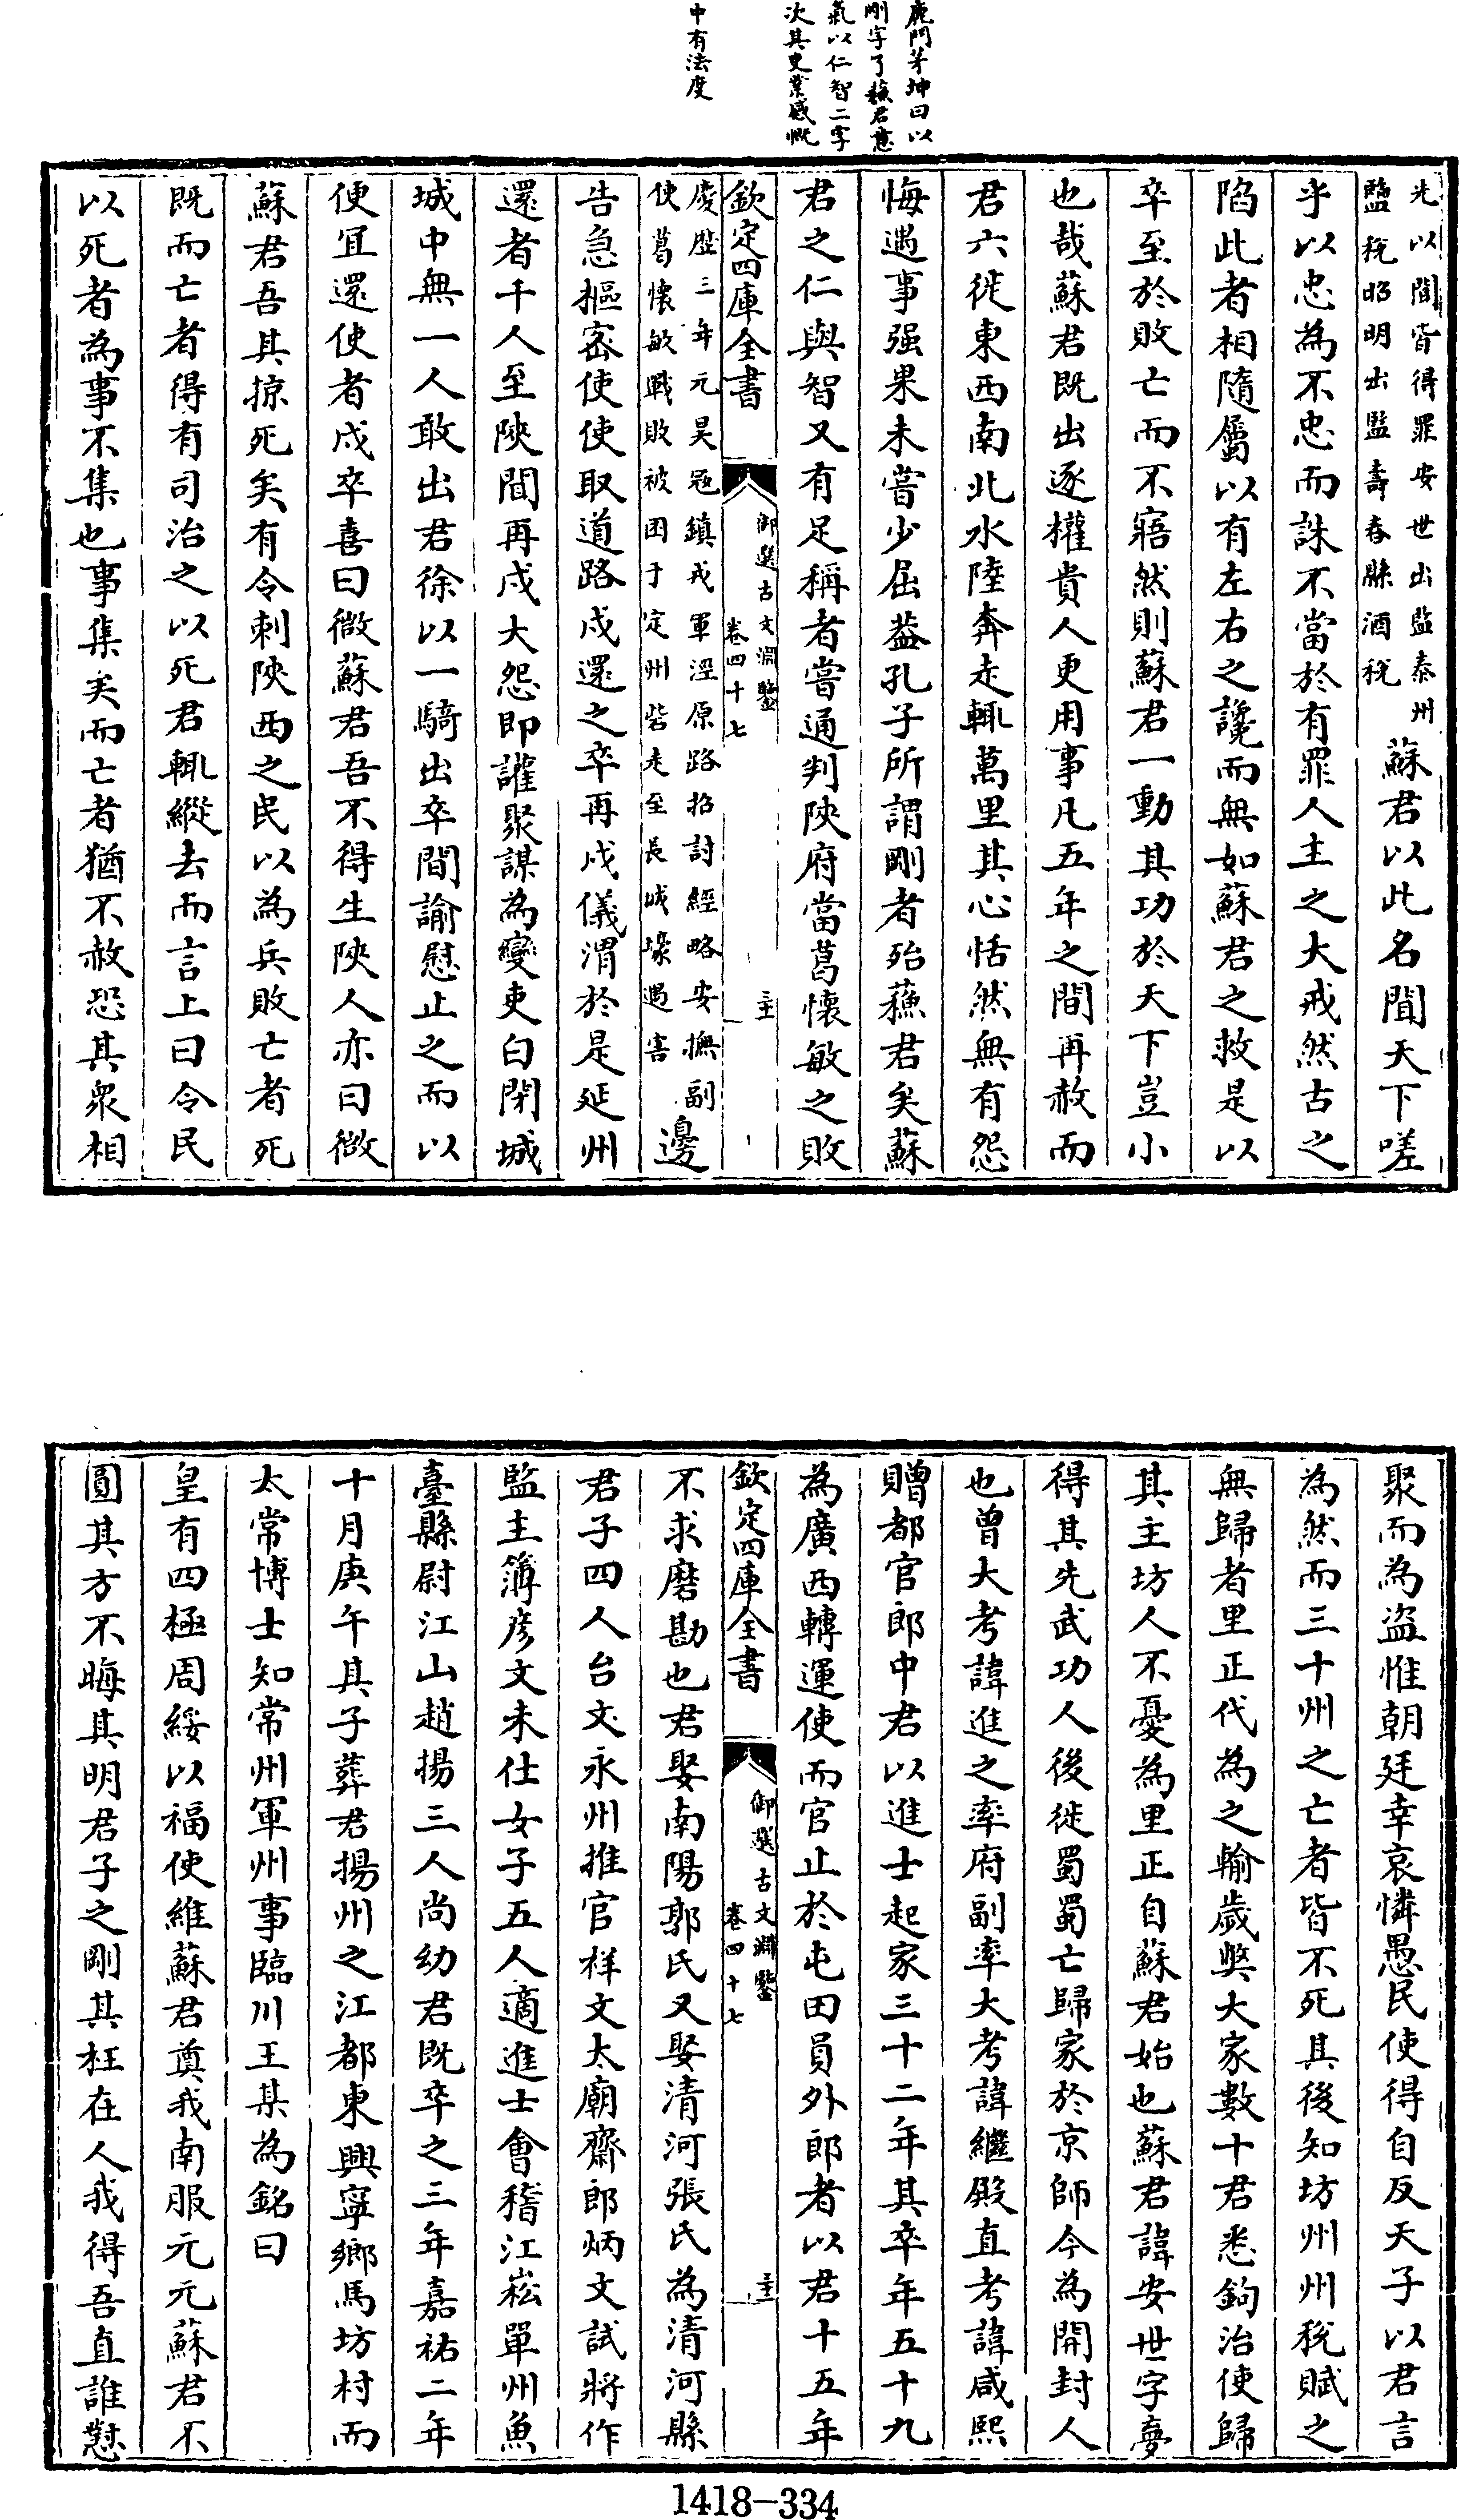 鹿門茅坤曰以
剛字了蘇君意
氣以仁智二字
次其吏業感慨
中有法度
光以聞皆得罪安世出監泰州
鹽税昭明出監壽春縣酒税
蘇君以此名聞天下嗟
乎以忠為不忠而誅不當於有罪人主之大戒然古之
陷此者相隨屬以有左右之讒而無如蘇君之救是以
卒至於敗亡而不寤然則蘇君一動其功於天下豈小
也哉蘇君既出逐權貴人更用事凡五年之間再赦而
君六徙東西南北水陸奔走輒萬里其心恬然無有怨
悔遇事强果未嘗少屈葢孔子所謂剛者殆蘇君矣蘇
君之仁與智又有足稱者嘗通判陝府當葛懷敏之敗
欽定四庫全書
御選古文淵鑒
卷四十七
三十一
慶歴三年元昊宼鎮戎軍涇原路招討經略安撫副
使葛懷敏戰敗被困于定州砦走至長城壕遇害
邊
告急樞密使使取道路戍還之卒再戍儀渭於是延州
還者千人至陝聞再戍大怨即讙聚謀為變吏白閉城
城中無一人敢出君徐以一騎出卒間諭慰止之而以
便冝還使者戍卒喜曰微蘇君吾不得生陝人亦曰微
蘇君吾其掠死矣有令刺陝西之民以為兵敗亡者死
既而亡者得有司治之以死君輒縱去而言上曰令民
以死者為事不集也事集矣而亡者猶不赦恐其衆相
聚而為盜惟朝廷幸哀憐愚民使得自反天子以君言
為然而三十州之亡者皆不死其後知坊州州税賦之
無歸者里正代為之輸歲弊大家數十君悉鉤治使歸
其主坊人不憂為里正自蘇君始也蘇君諱安世字夢
得其先武功人後徙蜀蜀亡歸家於京師今為開封人
也曾大考諱進之率府副率大考諱繼殿直考諱咸熙
贈都官郎中君以進士起家三十二年其卒年五十九
為廣西轉運使而官止於屯田員外郎者以君十五年
欽定四庫全書
御選古文淵鑒
卷四十七
三十二
不求磨勘也君娶南陽郭氏又娶清河張氏為清河縣
君子四人台文永州推官祥文太廟齋郎炳文試將作
監主簿彦文未仕女子五人適進士會稽江崧單州魚
臺縣尉江山趙揚三人尚幼君既卒之三年嘉祐二年
十月庚午其子葬君揚州之江都東興寧鄉馬坊村而
太常博士知常州軍州事臨川王某為銘曰
皇有四極周綏以福使維蘇君奠我南服元元蘇君不
圓其方不晦其明君子之剛其枉在人我得吾直誰懟
1418-334